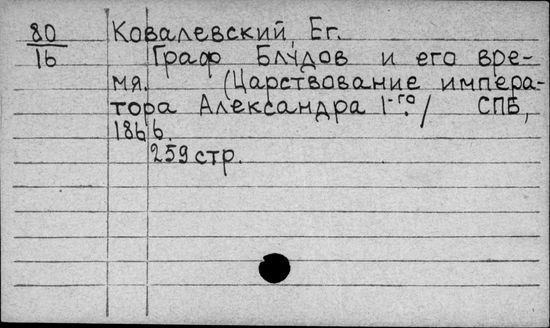 80 Ковалевский, Ег.
16 Граф Блудов и его вре-
мя. (Царствование импера-
тора Александра I-го./ СПБ,
1866.
259 стр.